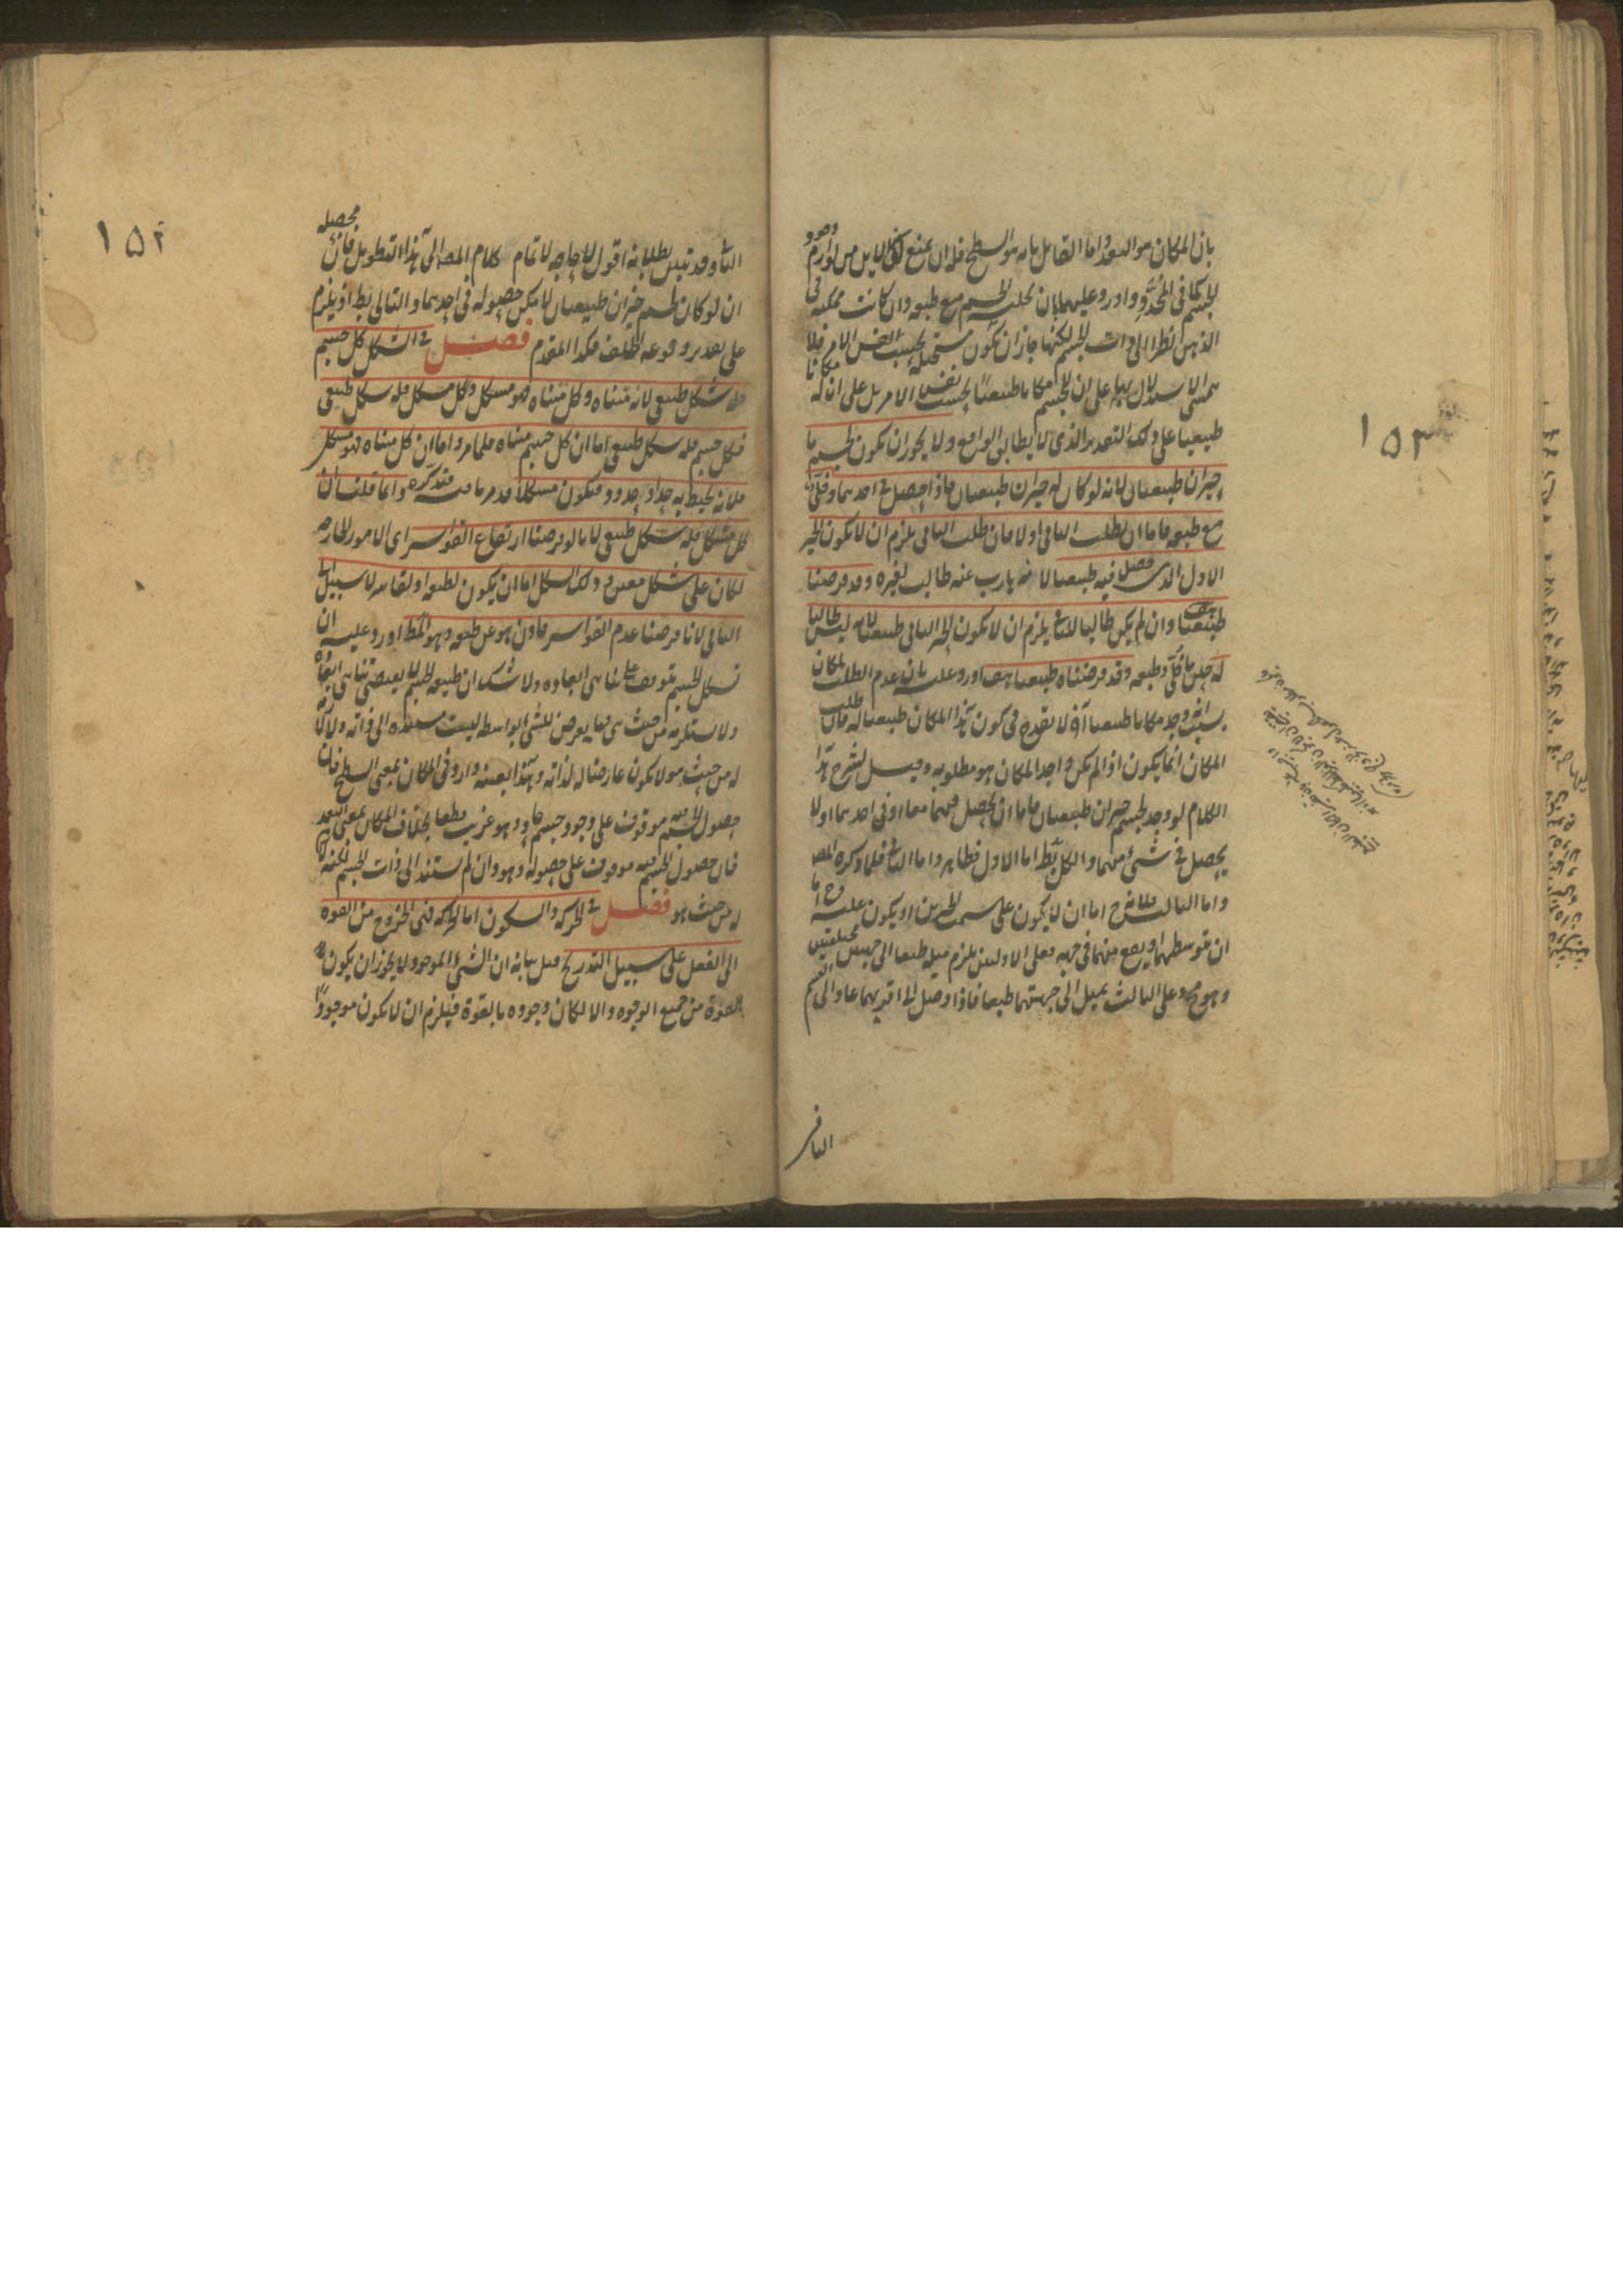 بان المكان هو البعد واما القائل بانه هو السطح فله ان يمنع كون الاين من لوازم وجود
الجسم كما فى المحدد واورد عليهما بان تخلية الجسم مع طبعه وان كانت ممكنة فى
الذهن نظرا الى ذات الجسم لكنها جاز ان تكون مستحيلة بحسب نفس الامر فلا
يتمشى الاستدلال بها على ان للجسم مكانا طبيعيا بحسب نفس الامر بل على ان له مكانا
طبيعيا على ذلك التقدير الذى لا يطابق الواقع ولا يجوز ان يكون لجسم ما
حيزان طبيعيان لانه لو كان له حيزان طبيعيان فاذا حصل فى احدهما وخلى
مع طبعه فاما ان يطلب الثانى او لا فان طلب الثانى يلزم ان لا يكون الحيز
الاول الذى حصل فيه طبيعيا لانه هارب عنه طالب لغيره وقد فرضنا
طبيعيا هف وان لم يكن طالبا للثانى يلزم ان لا يكون الحيز الثانى طبيعيا لانه ليس طالبا
له حين ما خلى وطبعه وقد فرضناه طبيعيا هف اورد عليه بان عدم الطلب لمكان
بسبب انه وجد مكانا طبيعيا آخر لا يقدح فى كون هذا المكان طبيعيا له فان طلب
المكان انما يكون اذا لم يكن واجد المكان هو مطلوبه وقيل لشرح هذا
الكلام لو وجد لجسم حيزان طبيعيان فاما ان يحصل فيهما معا او فى احدهما او لا
يحصل فى شئ منهما والكل بط اما الاول فظاهر واما الثانى فلما ذكره المصه
واما الثالث فلانه ح اما ان لا يكون على سمت الحيزين او يكون عليه وح اما
ان يتوسطهما او يقع منهما فى جهة فعلى الاولين يلزم ميله طبعا الى جهتين مختلفتين
وهو مح وعلى الثالث يميل الى جهتهما طبعا فاذا وصل الى اقربهما عاد الى القسم
الثانى
١٥٣
الثانى وقد تبين بطلانه اقول لا حاجة لاتمام كلام المصه الى هذا التطويل فان محصله
ان لو كان لجسم حيزان طبيعيان لامكن حصوله فى احدهما والتالى بط اذ يلزم
على تقدير وقوعه الخلف فكذا المقدم فصل فى الشكل كل جسم
فله شكل طبيعى لانه متناه وكل متناه فهو مشكل وكل مشكل فله شكل طبيعى
فكل جسم فله شكل طبيعى اما ان كل جسم متناه فلما مر واما ان كل متناه فهو مشكل
فلانه يحيط به حد او حدود فيكون مشكلا قد مر ما فيه فتذكره وانما قلنا ان
كل مشكل فله شكل طبيعى لانا لو فرضنا ارتفاع القواسر اى الامور الخارجة
لكان على شكل معين وذلك الشكل اما ان يكون لطبعه او لقاسر لا سبيل الى
الثانى لانا فرضنا عدم القواسر فاذن هو عن طبعه وهو المط اورد عليه ان
تشكل الجسم يتوقف على تناهى ابعاده ولا شك ان طبيعة الجسم لا يقتضى تناهى ابعاده
ولا يستلزمه من حيث هى فما يعرض للشئ بواسطة ليست مستندة الى ذاته ولا لازمة
له من حيث هو لا يكون عارضا له لذاته وهذا بعينه وارد فى المكان بمعنى السطح فان
حصول الجسم فيه موقوف على وجود جسم حاو وهو غريب قطعا بخلاف المكان بمعنى البعد
فان حصول الجسم فيه موقوف على حصوله وهو وان لم يستند الى ذات الجسم لكنه لازم
له من حيث هو فصل فى الحركة والسكون اما الحركة فهى الخروج من القوة
الى الفعل على سبيل التدريج قيل بيانه ان الشئ الموجود لا يجوز ان يكون
بالقوة من جميع الوجوه والا لكان وجوده بالقوة فيلزم ان لا يكون موجودا
١٥٢